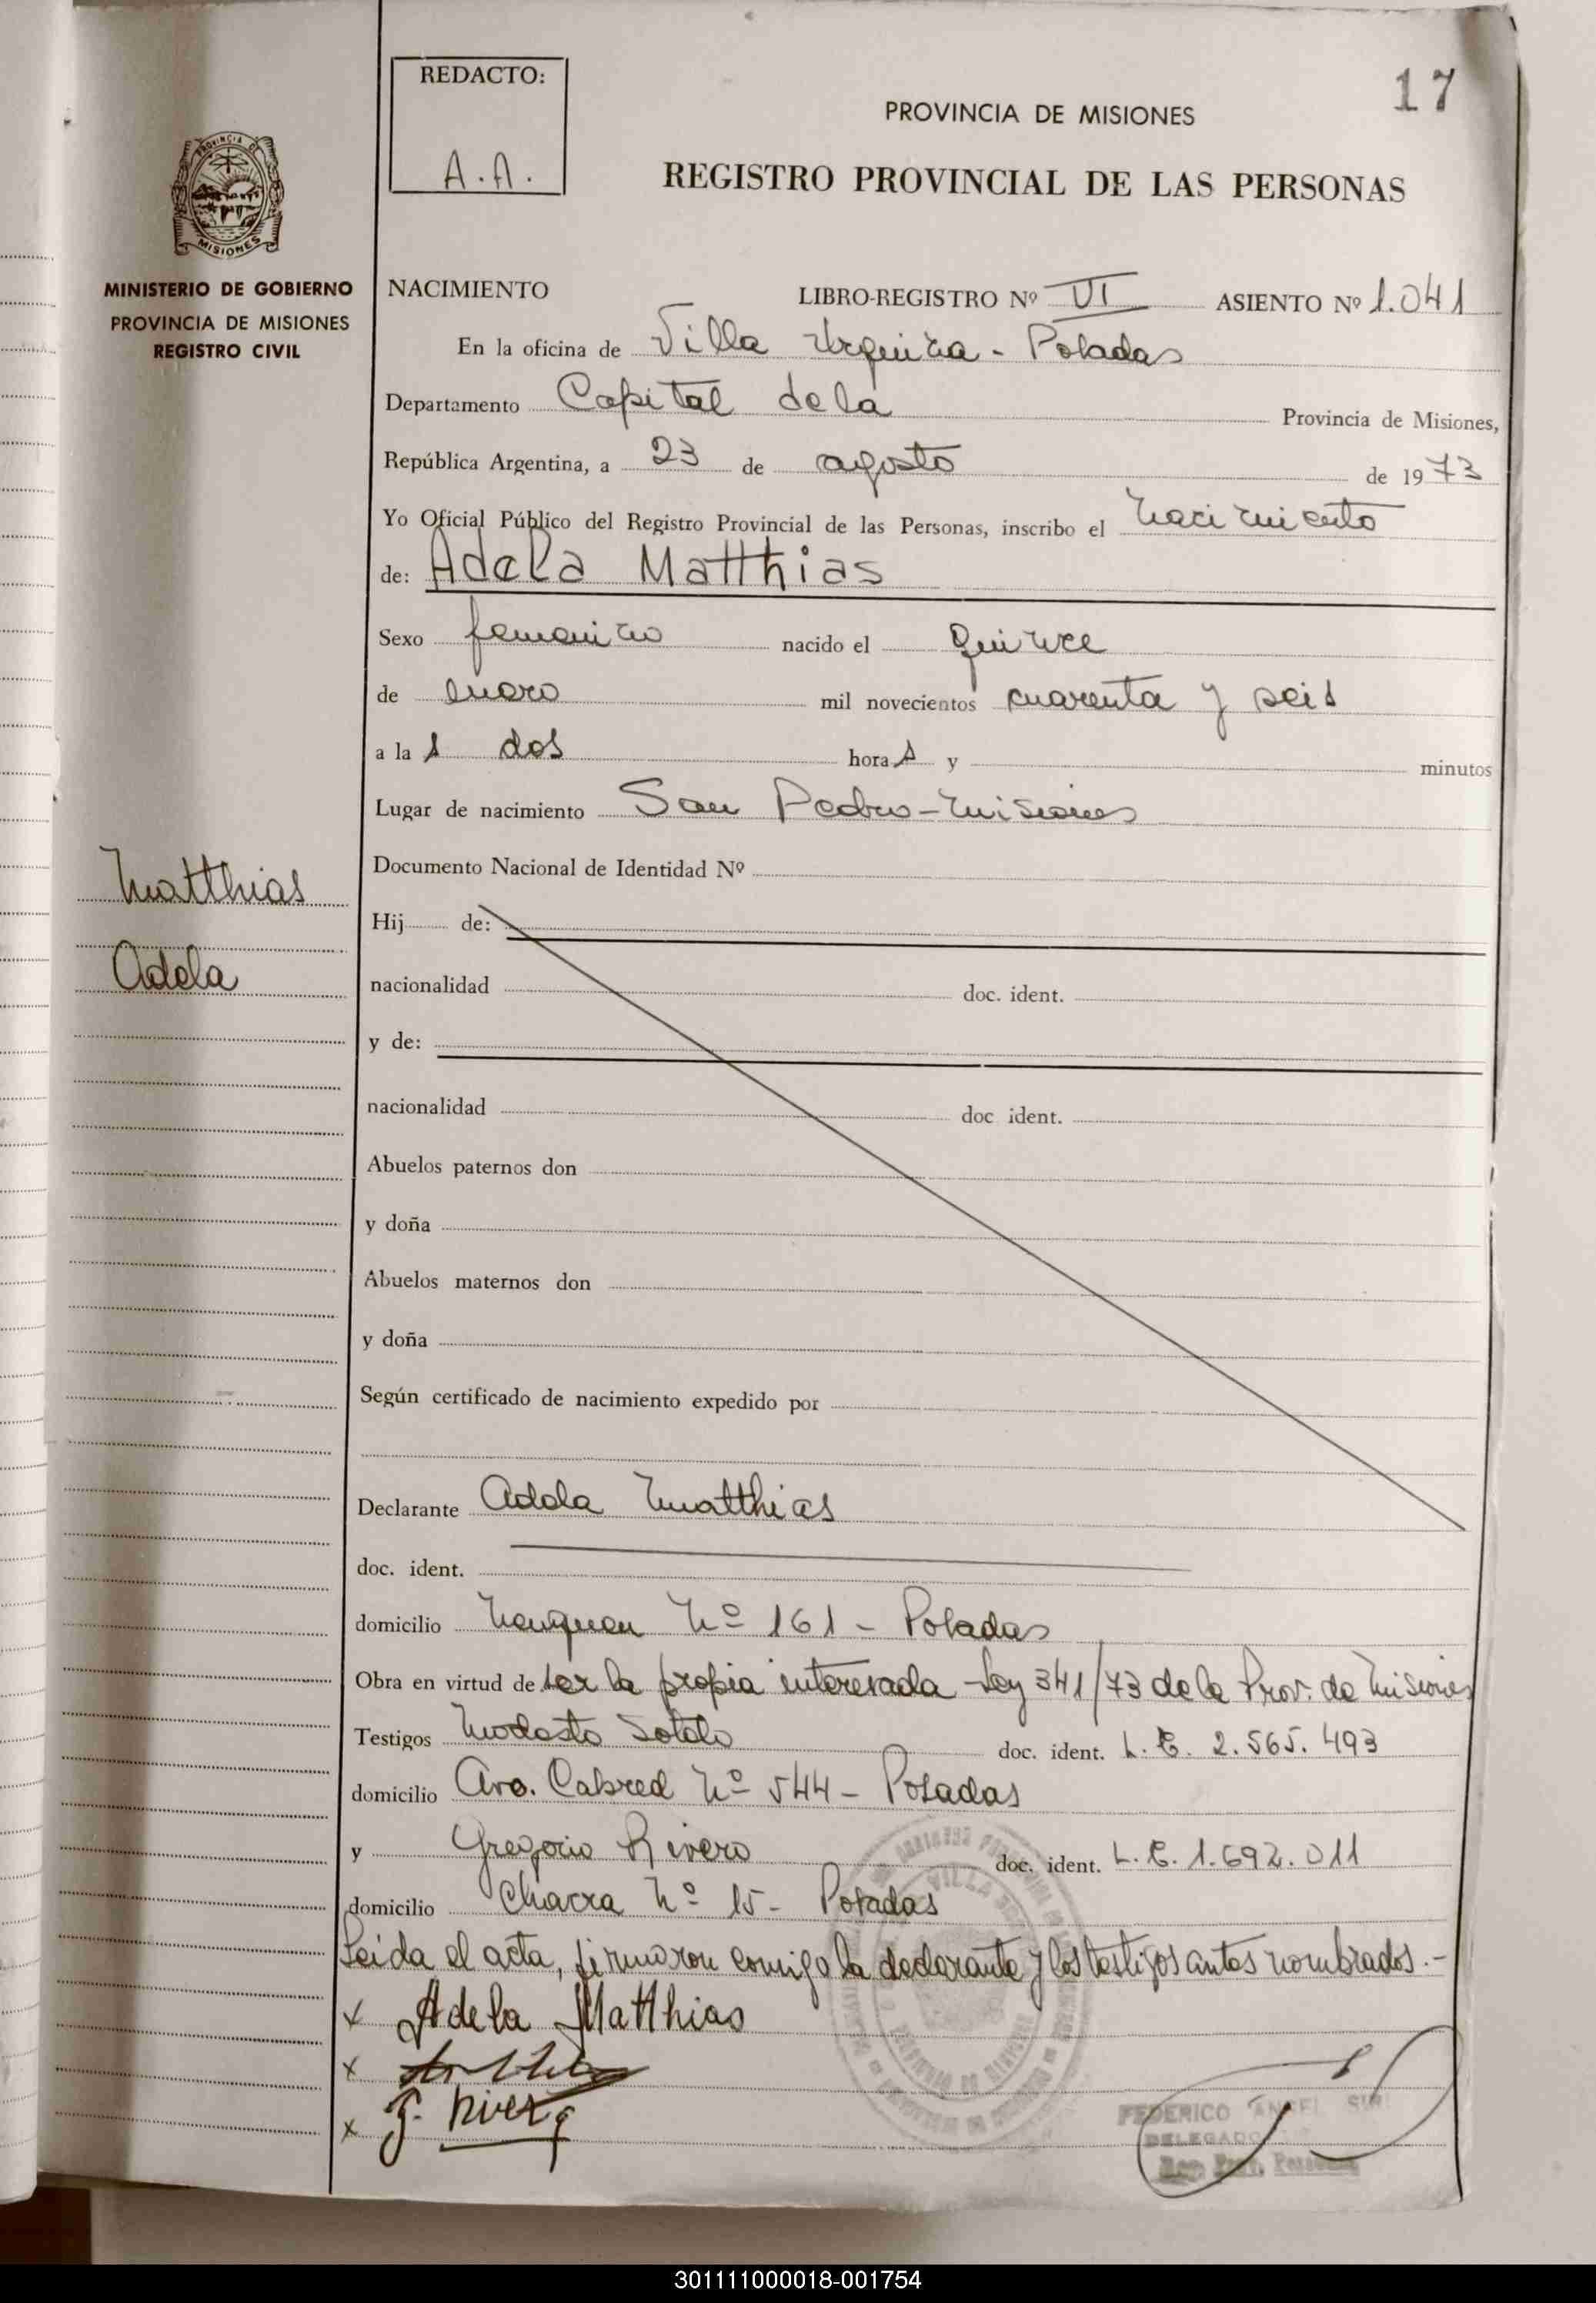 17
REDACTO:
A.A.
PROVINCIA DE MISIONES
REGISTRO PROVINCIAL DE LAS PERSONAS
PROVINCIA DE MISIONES
MINISTERIO DE GOBIERNO
PROVINCIA DE MISIONES
REGISTRO CIVIL
NACIMIENTO LIBRO-REGISTRO Nº VI ASIENTO Nº 1.041
En la oficina de Villa Urquiza - Posadas
Departamento Capital de la Provincia de Misiones,
República Argentina, a 23 de agosto de 1973
Yo Oficial Público del Registro Provincial de las Personas, inscribo el nacimiento
de: Adela Matthias
Sexo femenino nacido el quince
de enero mil novecientos cuarenta y seis
a las dos horas y minutos
Lugar de nacimiento San Pedro - Misiones
Documento Nacional de Identidad Nº
Matthias
Adela
Hij de:
nacionalidad doc. ident.
y de:
nacionalidad doc ident.
Abuelos paternos don
y doña
Abuelos maternos don
y doña
Según certificado de nacimiento expedido por
Declarante Adela Matthias
doc. ident.
domicilio Neuquen Nº 161 - Posadas
Obra en virtud de ser la propia interesada - Ley 341/73 de la Prov. de Misiones
Testigos Modesto Sotelo doc. ident. L. E. 2.565.493
domicilio Avo. Cabred Nº 544 - Posadas
y Gregorio Rivero doc. ident. L. E. 1.692.011
domicilio Chacra Nº 15 - Posadas
Leida el acta, firmaron conmigo la declarante y los testigos antes nombrados.-
x Adela Matthias
x
x G. Rivero
FEDERICO ANGEL
DELEGADO
301111000018-001754